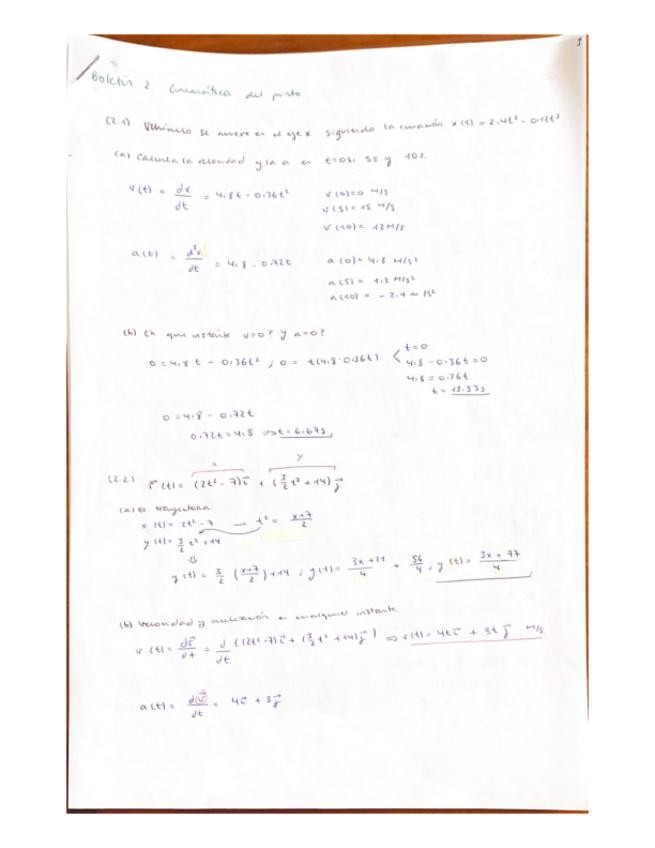 1
Boletín 2. Cinemática del punto
(2.1) Vehículo se mueve en el eje x siguiendo la ecuación x(t) = 2,4t² - 0,12t³
(a) Calcula la velocidad y la a en t=0s, 5s y 10s.
v(t) = dx/dt = 4,8t - 0,36t² v(0)=0 m/s
v(5)=15 m/s
v(10)= 12m/s
a(t) = d²x/dt = 4,8 - 0,72t a(0)= 4,8 m/s²
a(5)= 1,2 m/s²
a(10) = -2,4 m/s²
(b) En que instante v=0? y a=0?
0=4,8t - 0,36t² ; 0= t(4,8-0,36t) t=0
4,8 - 0,36t=0
4,8 = 0,36t
t= 13,33s
0=4,8 - 0,72t
0,72t=4,8 t= 6,67s
x y
(2.2) r(t)= (2t²-7)i + (3/2 t²+14)j
(a) Ec trayectoria
x(t)= 2t²-7 t² = x+7/2
y(t)= 3/2 t²+14
⇓
y(t)= 3/2 (x+7/2)+14 ; y(t)= 3x+21/4 + 56/4 ; y(t)= 3x+77/4
(b) Velocidad y aceleración en cualquier instante
v(t)= dr/dt = d/dt ((2t²-7)i + (3/2 t²+14)j) ⇒ v(t)= 4ti + 3tj m/s
a(t)= dv/dt = 4i + 3j